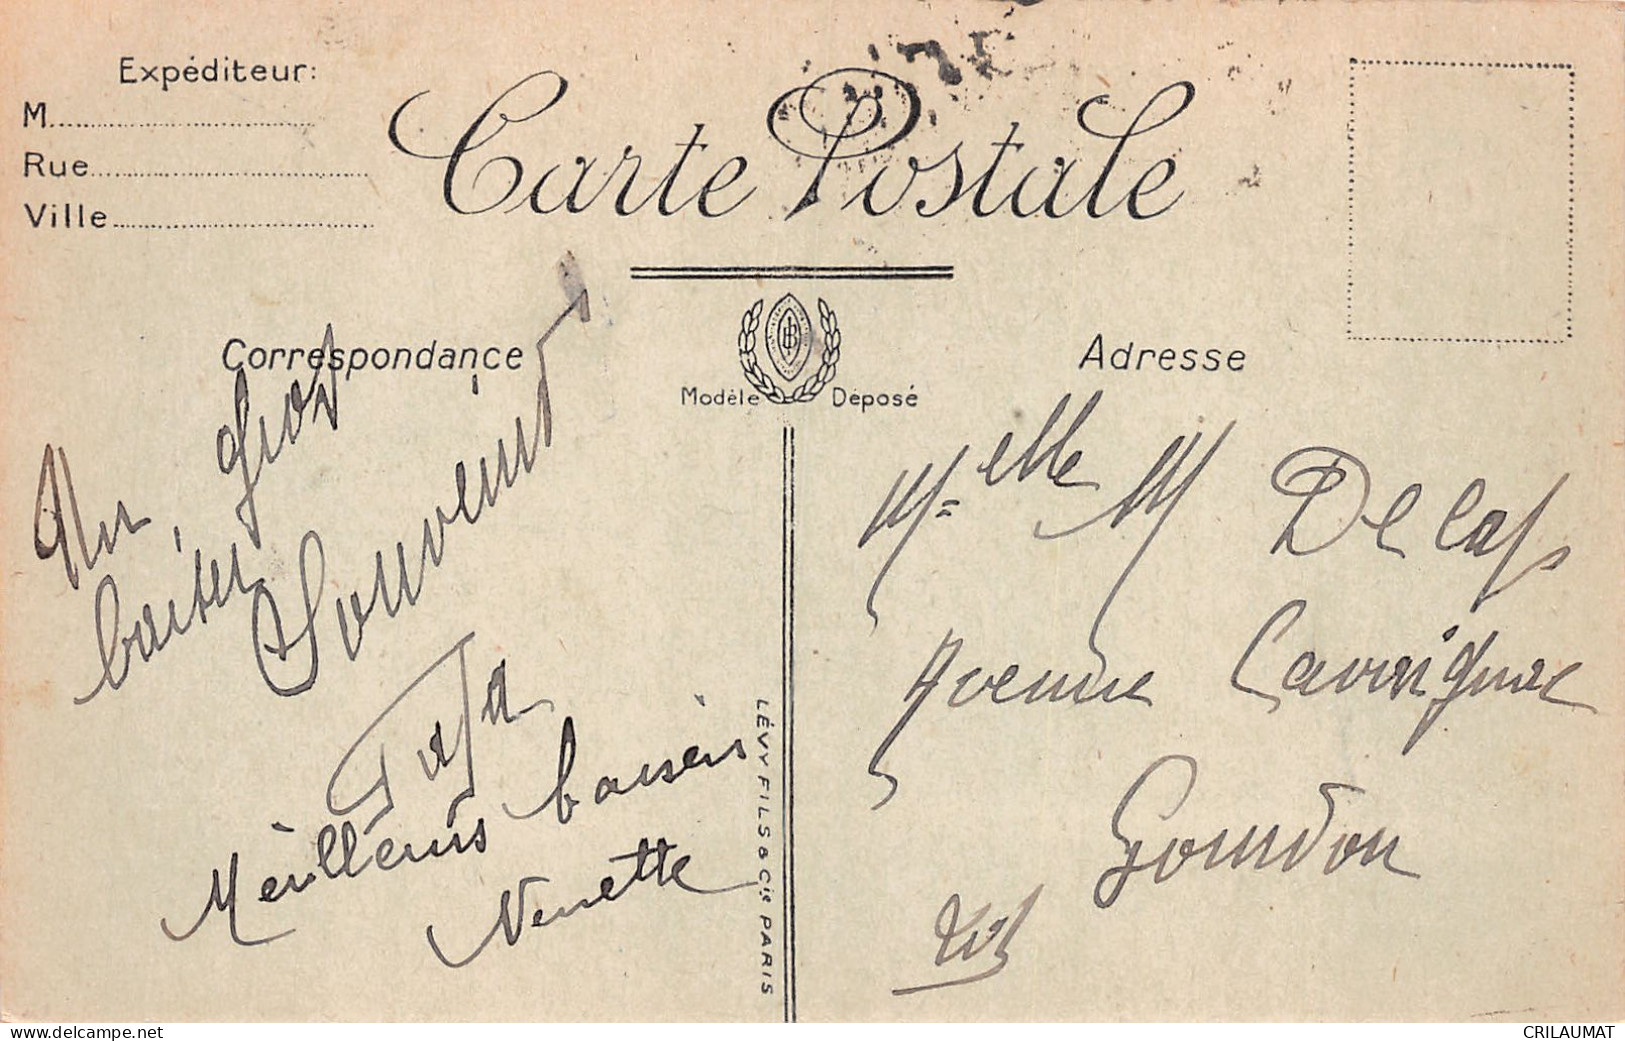 Expéditeur:
M
Rue
Ville
Carte Postale
Correspondance
Modèle Déposé
Adresse
Un gros
baiser
Souvenirs
Meilleurs baisers
Nenette
LÉVY FILS & Cie PARIS
Melle M Delas
Avenue Cavaignac
Gourdon
Lot
www.delcampe.net
CRILAUMAT